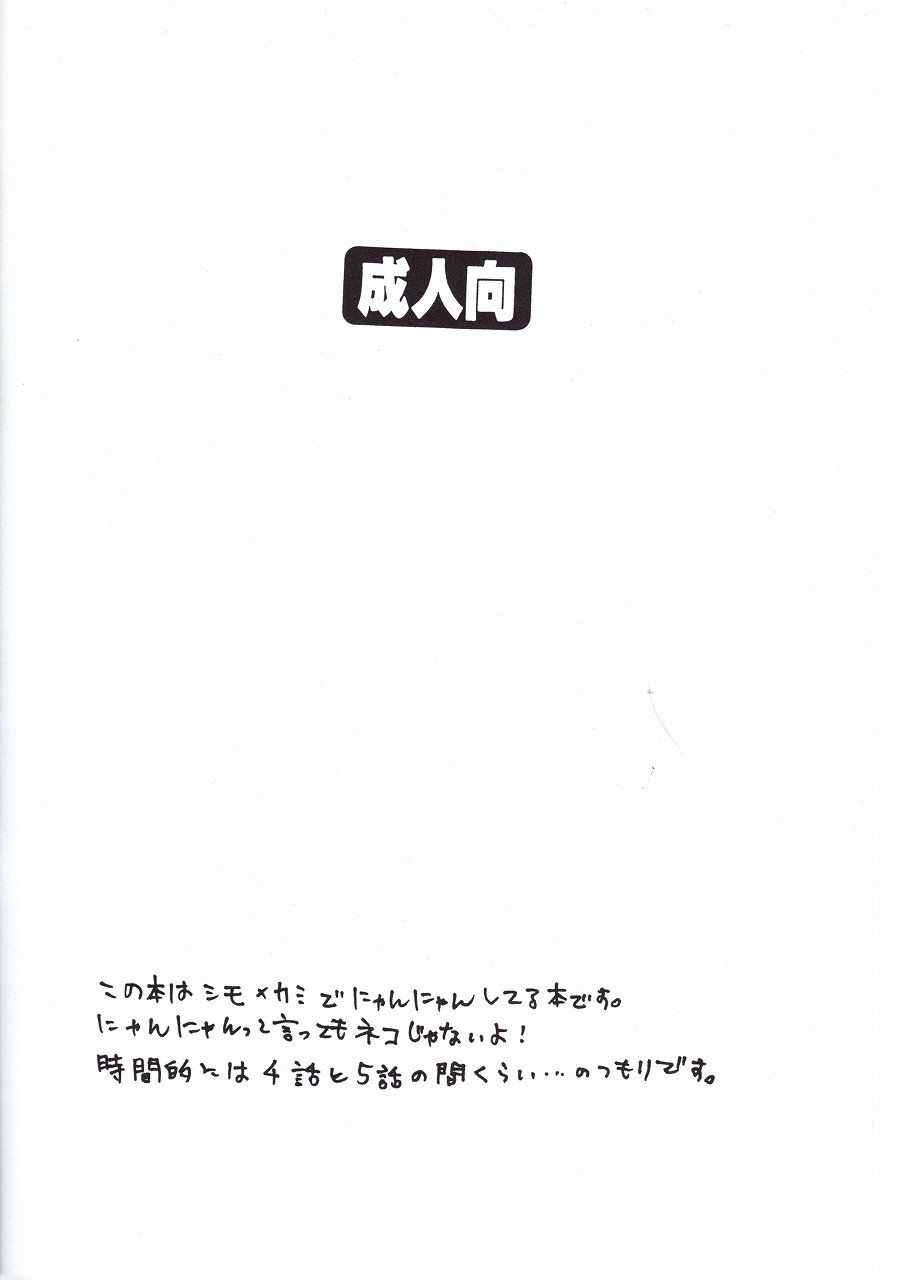 成人向
この本はシモ×カミでにゃんにゃんしてる本です。
にゃんにゃんって言ってもネコじゃないよ!
時間的には4話と5話の間くらい…のつもりです。